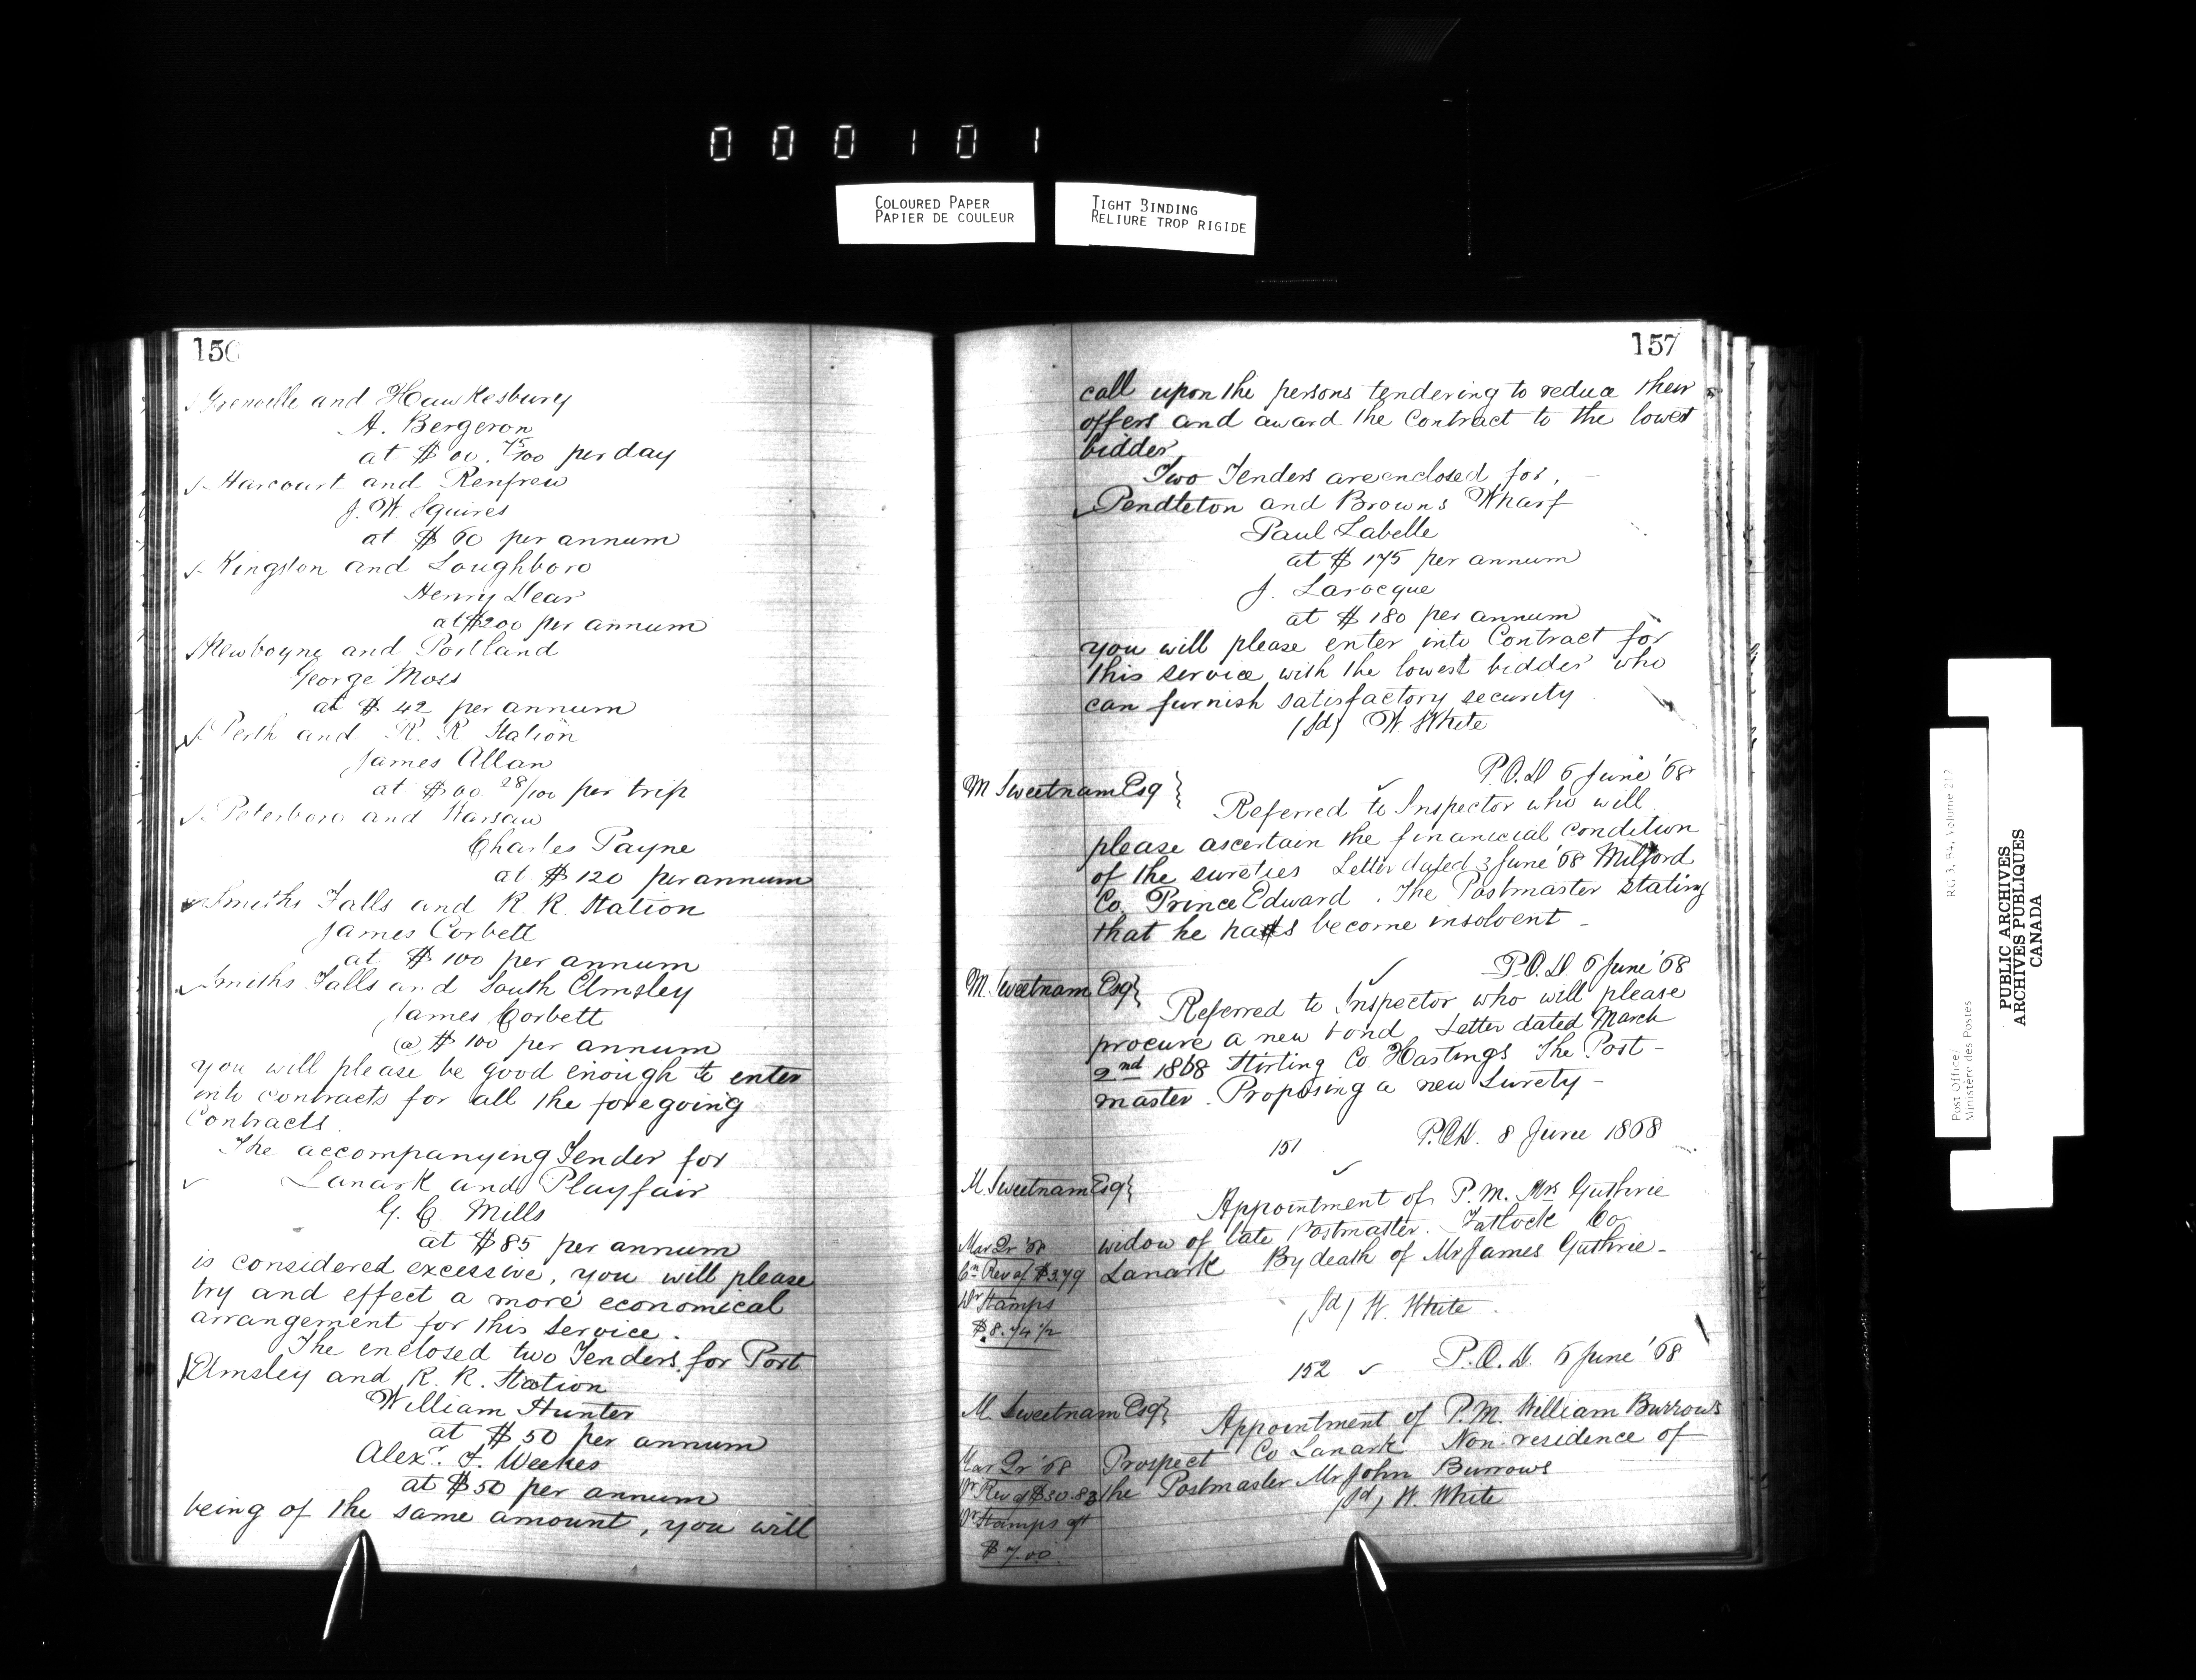 000101
COLOURED PAPER
PAPIER DE COULEUR
TIGHT BINDING
RELIURE TROP RIGIDE
156
Grenville and Hawkesbury
A. Bergeron
at $00.75/100 per day
Harcourt and Renfrew
J. W. Squires
at $60 per annum
Kingston and Loughboro
Henry Dear
at $200 per annum
Newboyne and Portland
George Moss
at $42 per annum
Perth and R. R Station
James Allan
at $00 28/100 per trip
Peterboro and Warsaw
Charles Payne
at $120 per annum
Smiths Falls and R. R. Station
James Corbett
at $100 per annum
Smiths Falls and South Elmsley
James Corbett
@ $100 per annum
you will please be good enough to enter
into contracts for all the foregoing
Contracts.
The accompanying Tender for
Lanark and Playfair
G. C. Mills
at $85 per annum
is considered excessive, you will please
try and effect a more economical
arrangement for this service.
The enclosed two Tenders for Port
Elmsley and R. R. Station
William Hunter
at $50 per annum
Alexr. F. Weekes
at $50 per annum
being of the same amount, you will
157
call upon the persons tendering to reduce their
offers and award the Contract to the lowest
bidder
Two Tenders are enclosed for,
Pendleton and Browns Wharf
Paul Labelle
at $175 per annum
J. Larocque
at $180 per annum
you will please enter into Contract for
this service with the lowest bidder who
can furnish satisfactory security
(Sd) W White
P.O.D 6 June '68
M Sweetnam Esq }
Referred to Inspector who will
please ascertain the financial condition
of the sureties Letter dated 3 June '68 Milford
Co. Prince Edward. The Postmaster stating
that he has become insolvent -
P.O.D 6 June '68
M. Sweetnam Esq }
Referred to Inspector who will please
procure a new bond Letter dated March
2nd 1868 Stirling Co. Hastings The Post-
master. Proposing a new Surety -
151 P.O.D. 8 June 1868
M. Sweetnam Esq }
Appointment of P. M. Mrs Guthrie
widow of late Postmaster. Tatlock Co
Lanark By death of Mr James Guthrie -
Mar Qr '68
Cm Rev of $3.79
Dr Stamps
$8.74 1/2
(Sd) W. White.
152 P.O.D. 6 June '68
M. Sweetnam Esq }
Appointment of P.M. William Burrows
Prospect Co Lanark Non-residence of
the Postmaster Mr John Burrows
Mar Qr '68
Rev of $30.83
Dr Stamps
$7.00
(Sd) W. White
Post Office/
Ministère des Postes
RG 3, B4, Volume 212
PUBLIC ARCHIVES
ARCHIVES PUBLIQUES
CANADA